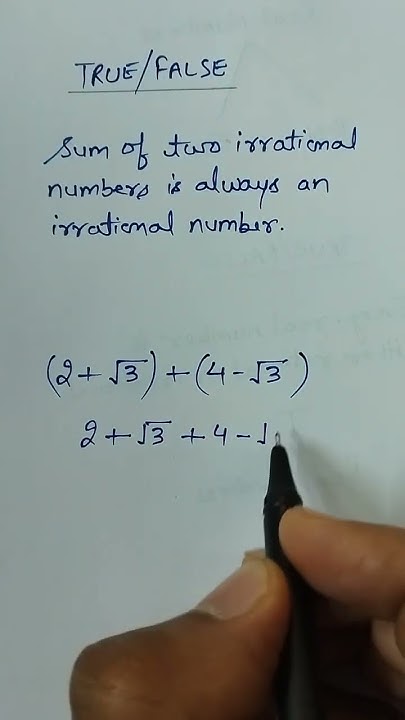 TRUE/FALSE
Sum of two irrational
numbers is always an
irrational number.
(2+√3)+(4-√3)
2+√3+4-√